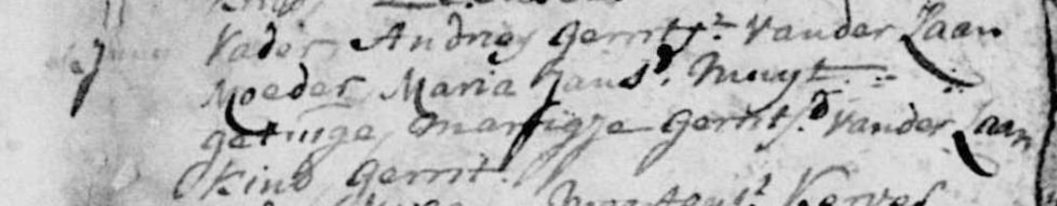 Vader Andries Gerrits.z van der Laan
Moeder Maria Jans.d. Muyt
getuige Marrigje Gerrits.d van der Laan
Kind Gerrit.